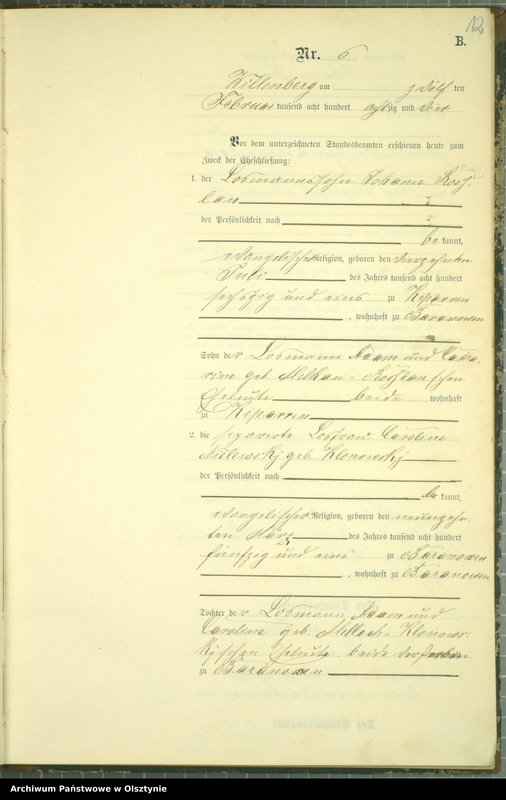 12
B.
Nr. 6
Willenberg am zwölf ten
Februar tausend acht hundert achtzig und vier
Vor dem unterzeichneten Standesbeamten erschienen heute zum
Zweck der Eheschließung:
1. der Losmannssohn Johann
der Persönlichkeit nach
be kannt,
evangelischer Religion, geboren den vierzehnten
Juli des Jahres tausend acht hundert
sechszig und eins zu Kiparren
, wohnhaft zu Baranowen
Sohn der Losmann Adam und Catha-
rine geb. schen
Eheleute beide wohnhaft
zu Kiparren
2. die separirte Losfrau Caroline
geb. Klonowski
der Persönlichkeit nach
be kannt,
evangelischer Religion, geboren den neunzehn-
ten März des Jahres tausend acht hundert
fünfzig und eins zu Baranowen
, wohnhaft zu Baranowen
Tochter der Losmann Adam und
Caroline geb. Klonow-
skischen Eheleute beide verstorben
zu Baranowen
Archiwum Państwowe w Olsztynie